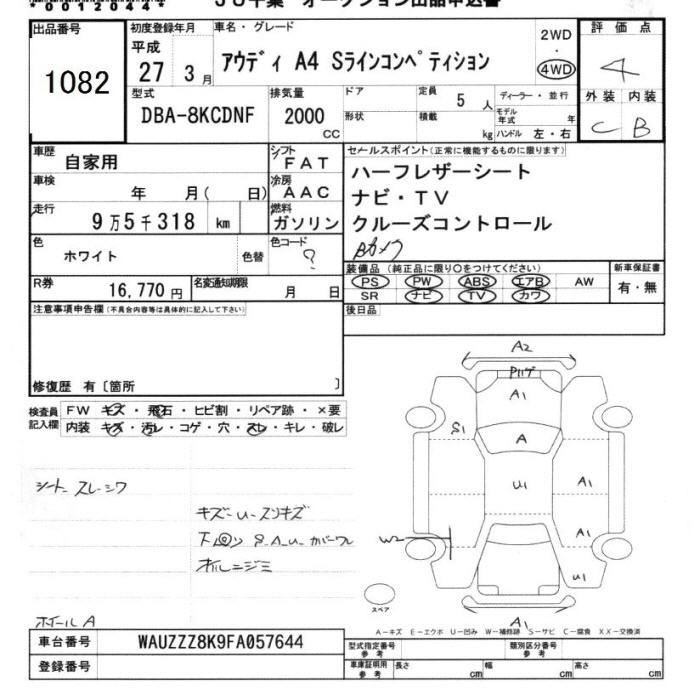 *00120444*
出品番号 初度登録年月 車名・グレード 2WD・4WD 評価点
1082 平成27 3月 アウディ A4 Sラインコンペティション 4
型式 排気量 ドア 定員 ディーラー・並行 外装 内装
DBA-8KCDNF 2000CC 5人 C B
形状 積載 kg モデル年式 年 ハンドル 左・右
車歴 自家用 シフト FAT セールスポイント(正常に機能するものに限ります)
車検 年 月( 日) 冷房 AAC ハーフレザーシート
走行 9万5千318 km 燃料 ガソリン ナビ・TV
色 ホワイト 色替 色コード ? クルーズコントロール
Bカメラ
装備品(純正品に限り○をつけてください) 新車保証書
PS PW ABS エアB AW 有・無
SR ナビ TV カワ
R券 16,770円 名変通知期限 月 日 後日品
注意事項申告欄(不具合内容等は具体的に記入して下さい)
修復歴 有〔箇所 〕
検査員記入欄 FW キズ・飛石・ヒビ割・リペア跡・×要
内装 キズ・汚レ・コゲ・穴・スレ・キレ・破レ
シート スレ シワ
キズ U スリキズ
ホイールA
A2
A1
S1
A
U1
A1
W2
A1
U1
A1
スペア
A-キズ E-エクボ U-凹み W-補修跡 S-サビ C-腐食 XX-交換済
車台番号 WAUZZZ8K9FA057644 型式指定番号 参考 類別区分番号 参考
登録番号 車庫証明用 参考 長さ cm 幅 cm 高さ cm